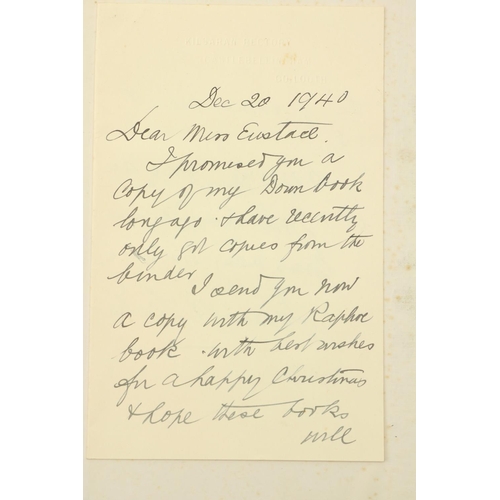 Dec 20 1940
Dear Miss Eustace.
I promised you a
copy of my Down book
long ago & have recently
only got copies from the
binder
I send you now
a copy with my Raphoe
book . with best wishes
for a happy Christmas
& hope these books
will